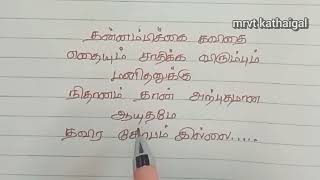 mrvt kathaigal
தன்னம்பிக்கை கவிதை
எதையும் சாதிக்க விரும்பும்
மனிதனுக்கு
நிதானம் தான் அற்புதமான
ஆயுதமே
தவிர கோபம் இல்லை.....